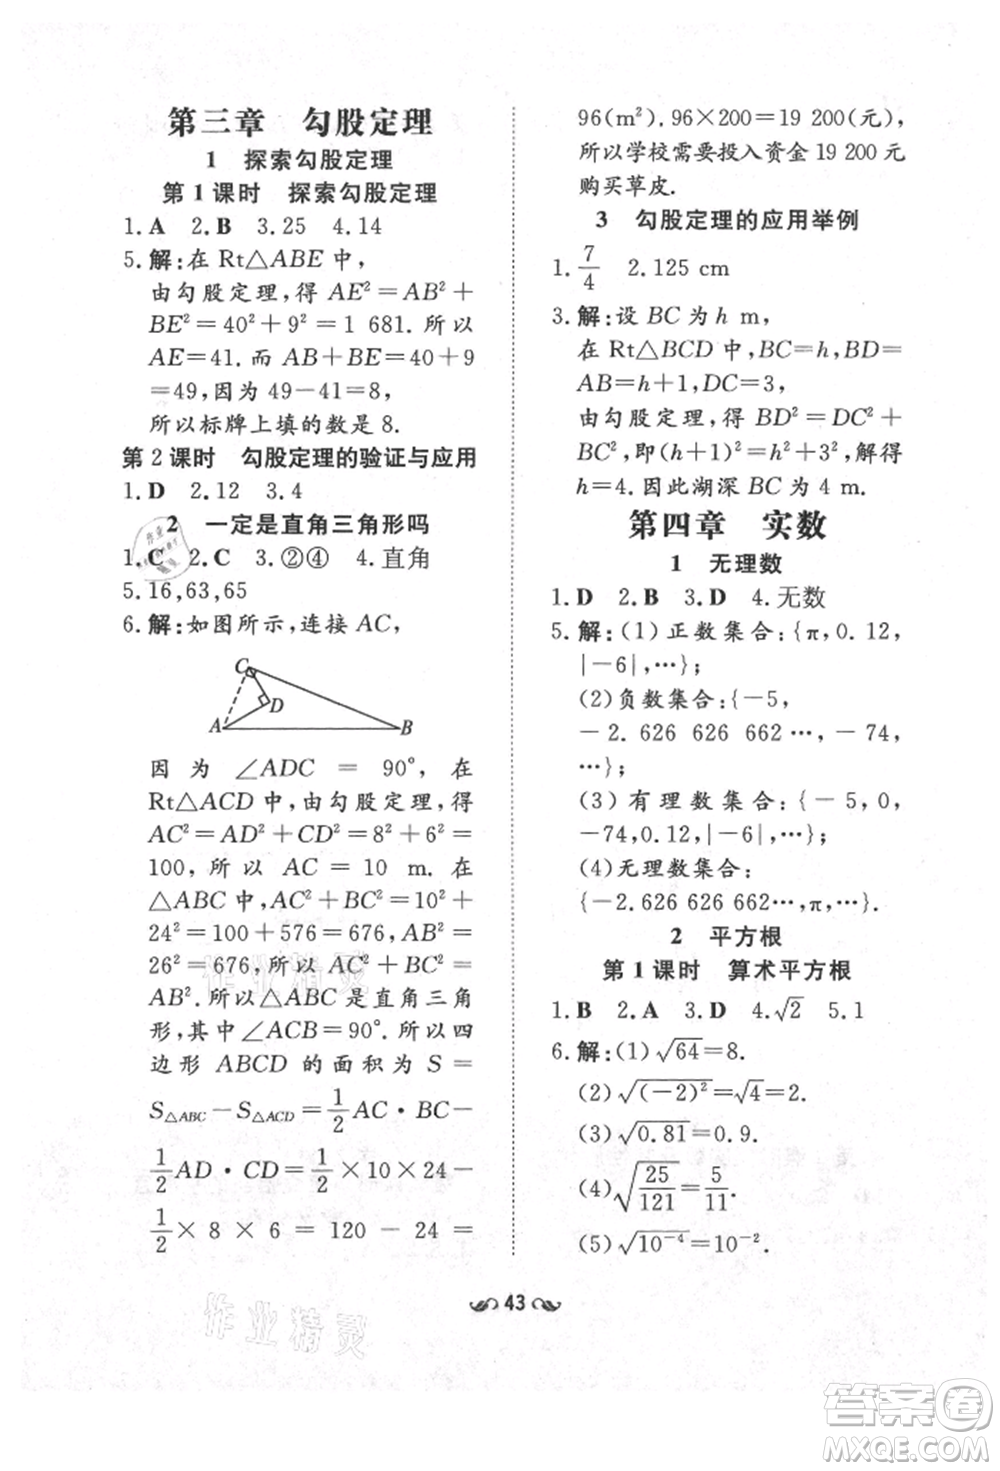 第三章　勾股定理
1　探索勾股定理
第1课时　探索勾股定理
1.A　2.B　3.25　4.14
5.解:在 Rt△ABE 中,
由勾股定理,得 AE²=AB²+
BE²=40²+9²=1 681.所以
AE=41.而 AB+BE=40+9
=49,因为 49-41=8,
所以标牌上填的数是 8.
第2课时　勾股定理的验证与应用
1.D　2.12　3.4
2　一定是直角三角形吗
1.C　2.C　3.②④　4.直角
5.16,63,65
6.解:如图所示,连接 AC,
C
D
A　B
因为 ∠ADC = 90°, 在
Rt△ACD 中,由勾股定理,得
AC²=AD²+CD²=8²+6²=
100, 所以 AC = 10 m. 在
△ABC 中, 因为 AC²+BC²=10²+
24²=100+576=676,AB²=
26²=676,所以 AC²+BC²=
AB².所以△ABC 是直角三角
形,其中∠ACB=90°.所以四
边形 ABCD 的面积为 S=
S△ABC-S△ACD=1/2 AC·BC-
1/2 AD·CD=1/2×10×24-
1/2×8×6=120-24=
96(m²).96×200=19 200(元),
所以学校需要投入资金 19 200元
购买草皮.
3　勾股定理的应用举例
1.7/4　2.125 cm
3.解:设 BC 为 h m,
在 Rt△BCD 中,BC=h,BD=
AB=h+1,DC=3,
由勾股定理,得 BD²=DC²+
BC²,即(h+1)²=h²+3²,解得
h=4.因此湖深 BC 为 4 m.
第四章　实数
1　无理数
1.D　2.B　3.D　4.无数
5.解:(1)正数集合:{π,0.12,
|-6|,…};
(2)负数集合:{-5,
-2.626 626 662…,-74,
…};
(3)有理数集合:{-5,0,
-74,0.12,|-6|,…};
(4)无理数集合:
{-2.626 626 662…,π,…}.
2　平方根
第1课时　算术平方根
1.B　2.A　3.D　4.√2　5.1
6.解:(1)√64=8.
(2)√(-2)²=√4=2.
(3)√0.81=0.9.
(4)√25/121=5/11.
(5)√10⁻⁴=10⁻².
43
作业精灵
作业精灵
答案卷
MXQE.COM